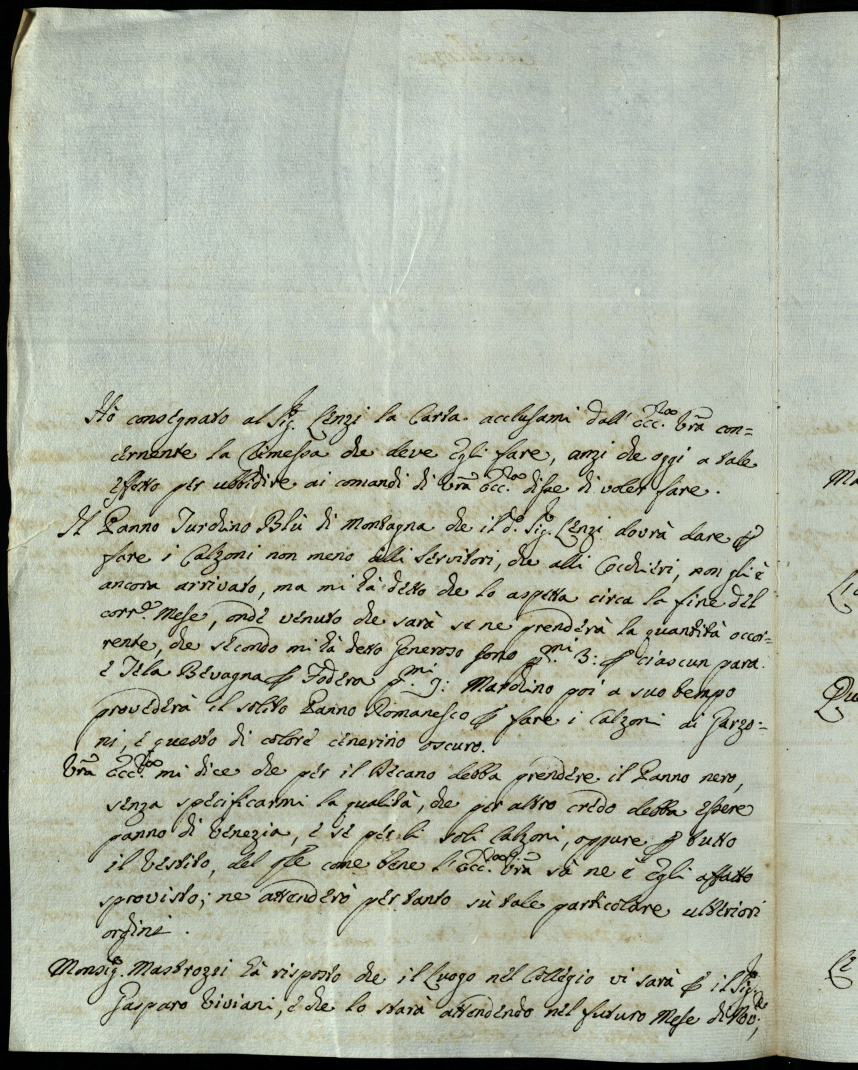 Hò consegnato al Sig.r Lenzi la Carta acclusami dall' Ecc.za Vr̃a con=
cernente la Rimessa che deve Egli fare, anzi che oggi a tale
effetto per ubbidire ai comandi di Vr̃a Ecc.za disse di voler fare.
Il Panno Turchino Blù di montagna che il d.o Sig.r Lenzi dovrà dare ꝑ
fare i Calzoni non meno alli Servitori, che alli Cocchieri, non gli è
ancora arrivato, ma mi hà detto che lo aspetta circa la fine del
corr.e Mese, onde venuto che sarà se ne prenderà la quantità occor=
rente, che secondo mi hà detto Generoso sono p.mi 3: ꝑ ciascun para
è Tela Bevagna ꝑ Fodera p.mi 9: Marchino poi a suo tempo
provederà il solito Panno Romanesco ꝑ fare i Calzoni ai Garzo=
ni, è questo di colore cenerino oscuro.
Vr̃a Ecc.za mi dice che per il Decano debba prendere il Panno nero,
senza specificarmi la qualità, che per altro credo debba essere
panno di Venezia, è se per li soli Calzoni, oppure ꝑ tutto
il Vestito, del qle come bene l'Ecc.za Vr̃a sà ne è Egli affatto
sprovisto; ne attenderò per tanto sù tale particolare ulteriori
ordini.
Monsig.r Mastrozzi hà risposto che il Luogo nel Collegio vi sarà ꝑ il Sig.r
Gasparo Viviani, è che lo starà attendendo nel futuro Mese di Nov:
Ma
Qu